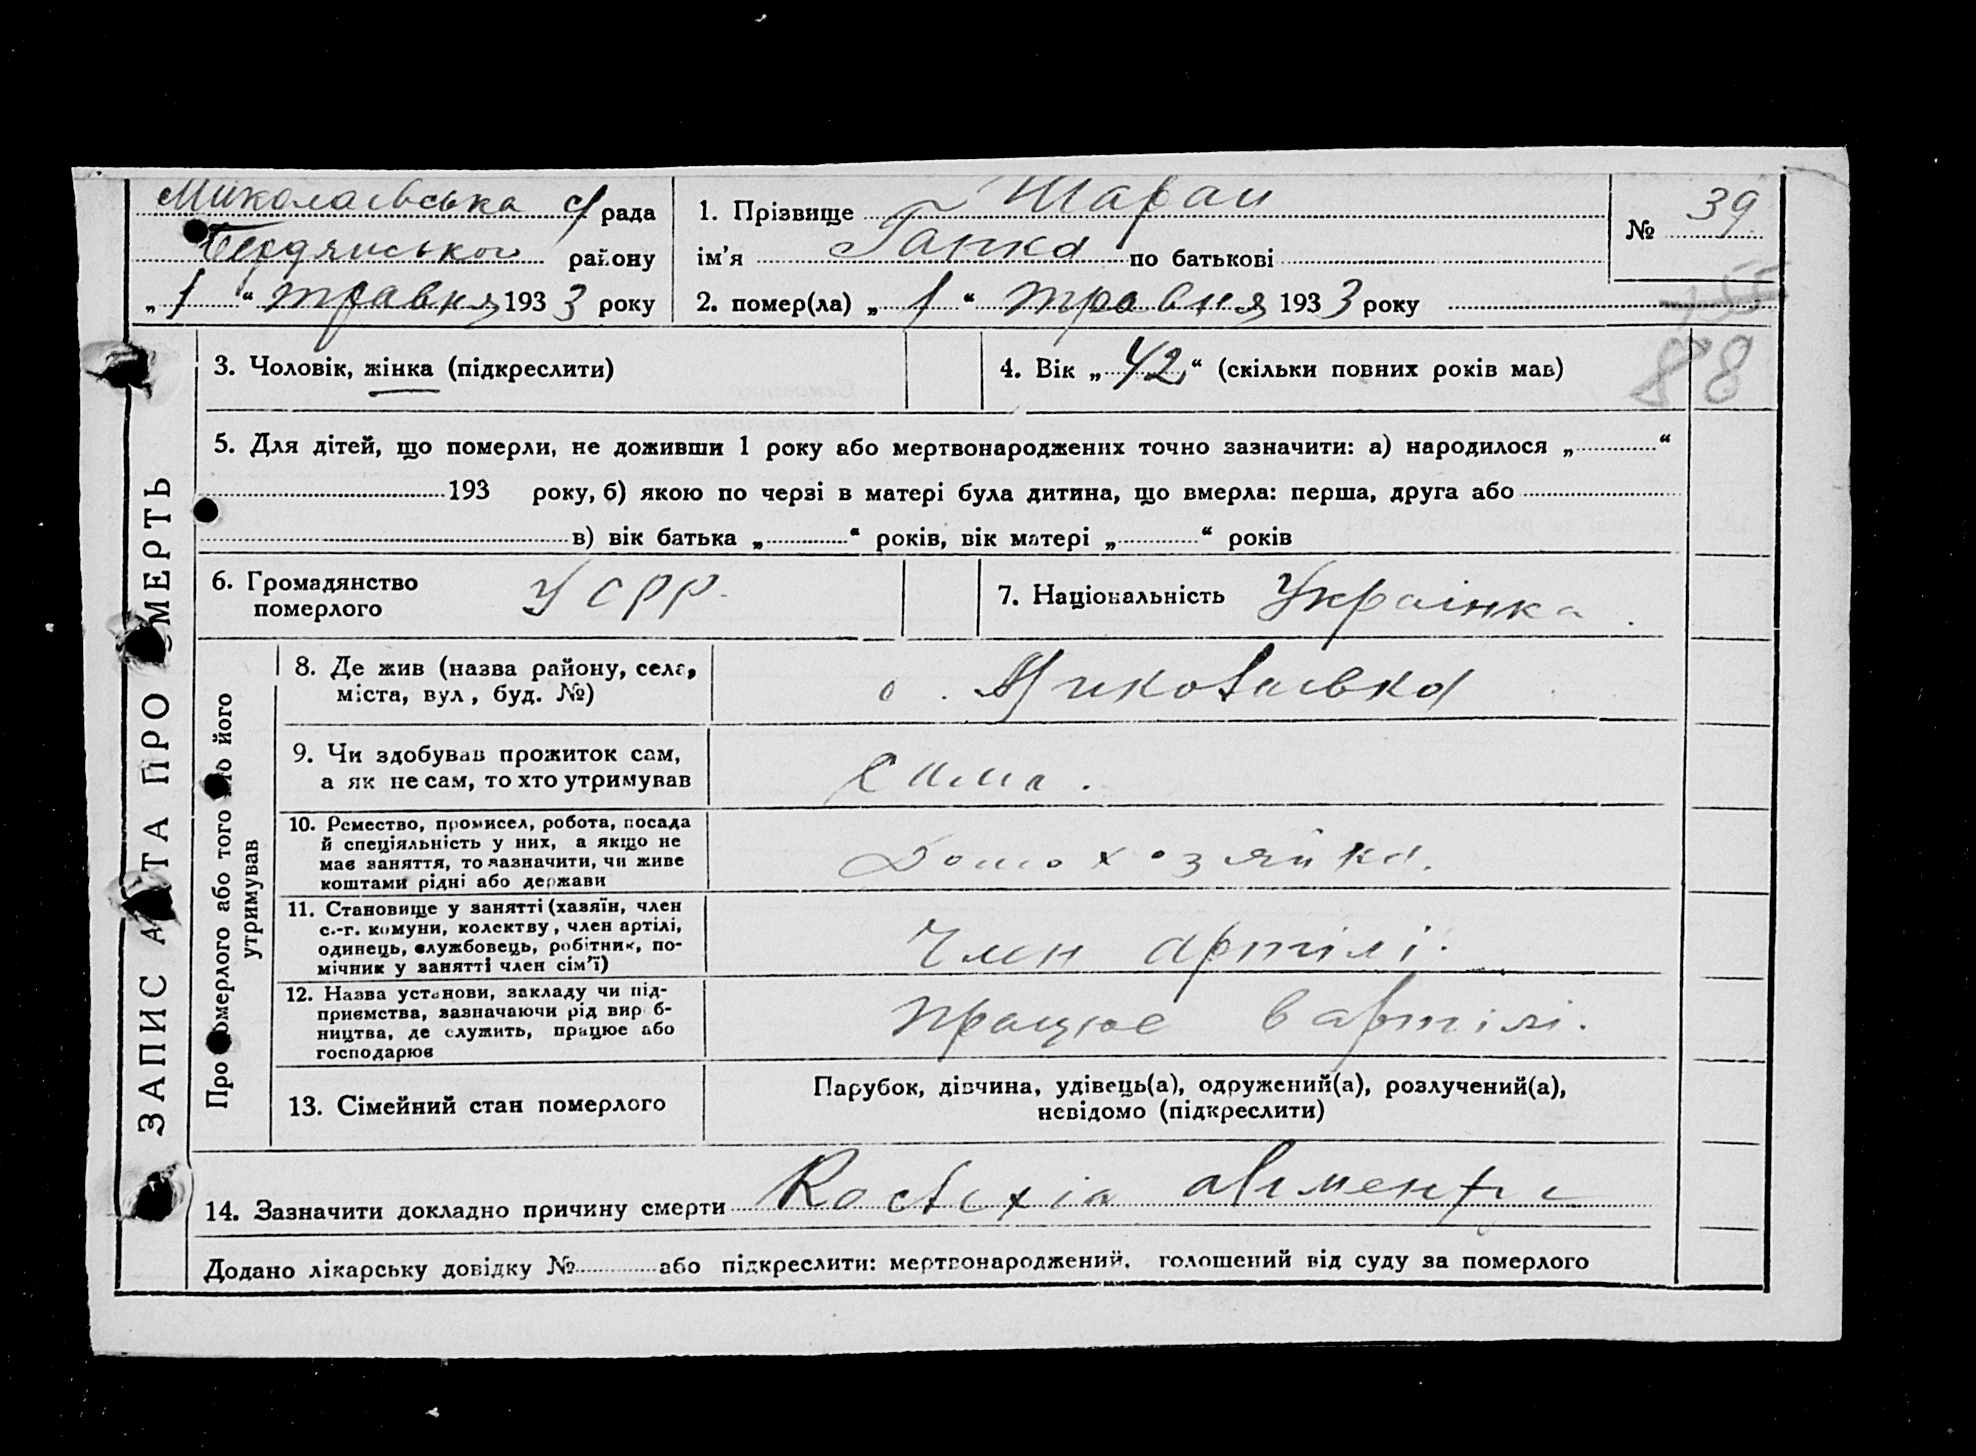 Миколаївська с/рада
Бердянського району
„1“ травня 1933 року
1. Прізвище Шаран
ім'я Ганна по батькові
2. помер(ла) „1“ травня 1933 року
№ 39
88
ЗАПИС АКТА ПРО СМЕРТЬ
3. Чоловік, жінка (підкреслити)
4. Вік „42“ (скільки повних років мав)
5. Для дітей, що померли, не доживши 1 року або мертвонароджених точно зазначити: а) народилося „ “
193 року, б) якою по черзі в матері була дитина, що вмерла: перша, друга або
в) вік батька „ “ років, вік матері „ “ років
6. Громадянство
померлого
УСРР.
7. Національність Українка.
Про померлого або того хто його
утримував
8. Де жив (назва району, села,
міста, вул, буд. №)
с. Миколаївка
9. Чи здобував прожиток сам,
а як не сам, то хто утримував
сама.
10. Ремество, промисел, робота, посада
й спеціяльність у них, а якщо не
має заняття, то зазначити, чи живе
коштами рідні або держави
Домохозяйка.
11. Становище у занятті (хазяїн, член
с.-г. комуни, колектву, член артілі,
одинець, службовець, робітник, по-
мічник у занятті член сім'ї)
Член артілі.
12. Назва установи, закладу чи під-
приємства, зазначаючи рід вироб-
ництва, де служить, працює або
господарює
працює в артілі.
13. Сімейний стан померлого
Парубок, дівчина, удівець(а), одружений(а), розлучений(а),
невідомо (підкреслити)
14. Зазначити докладно причину смерти
Додано лікарську довідку № або підкреслити: мертвонароджений, голошений від суду за померлого